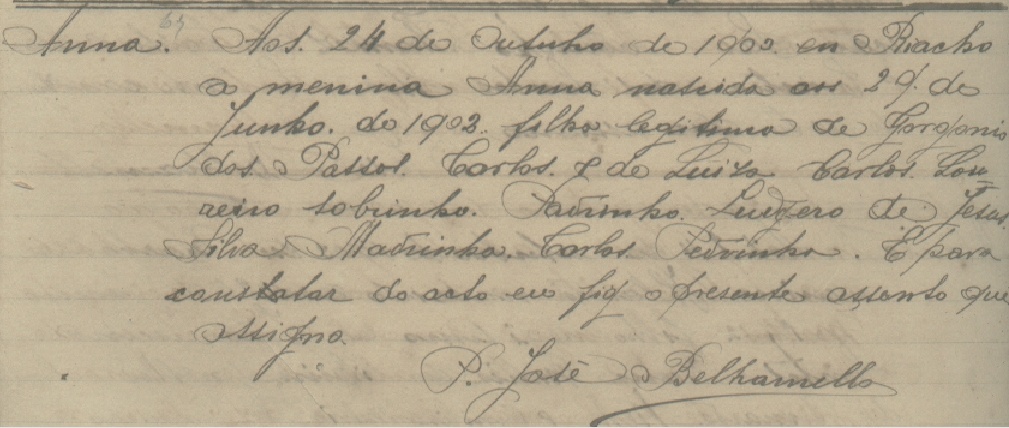 63
Anna. Aos. 24 de Outubro de 1902. en Riacho
a menina Anna nascida aos 29. de
Junho. de 1902. filha legitima de Gorgonio
dos. Passos. Carlos. e de Luiza Carlos. Lou
reiro sobrinho. Padrinho. Ludgero de Jesus.
Silva. Madrinha. Carlos. Pedrinha. E para
constatar do acto eu fiz o presente assento que
assigno.
P. José Belhamello